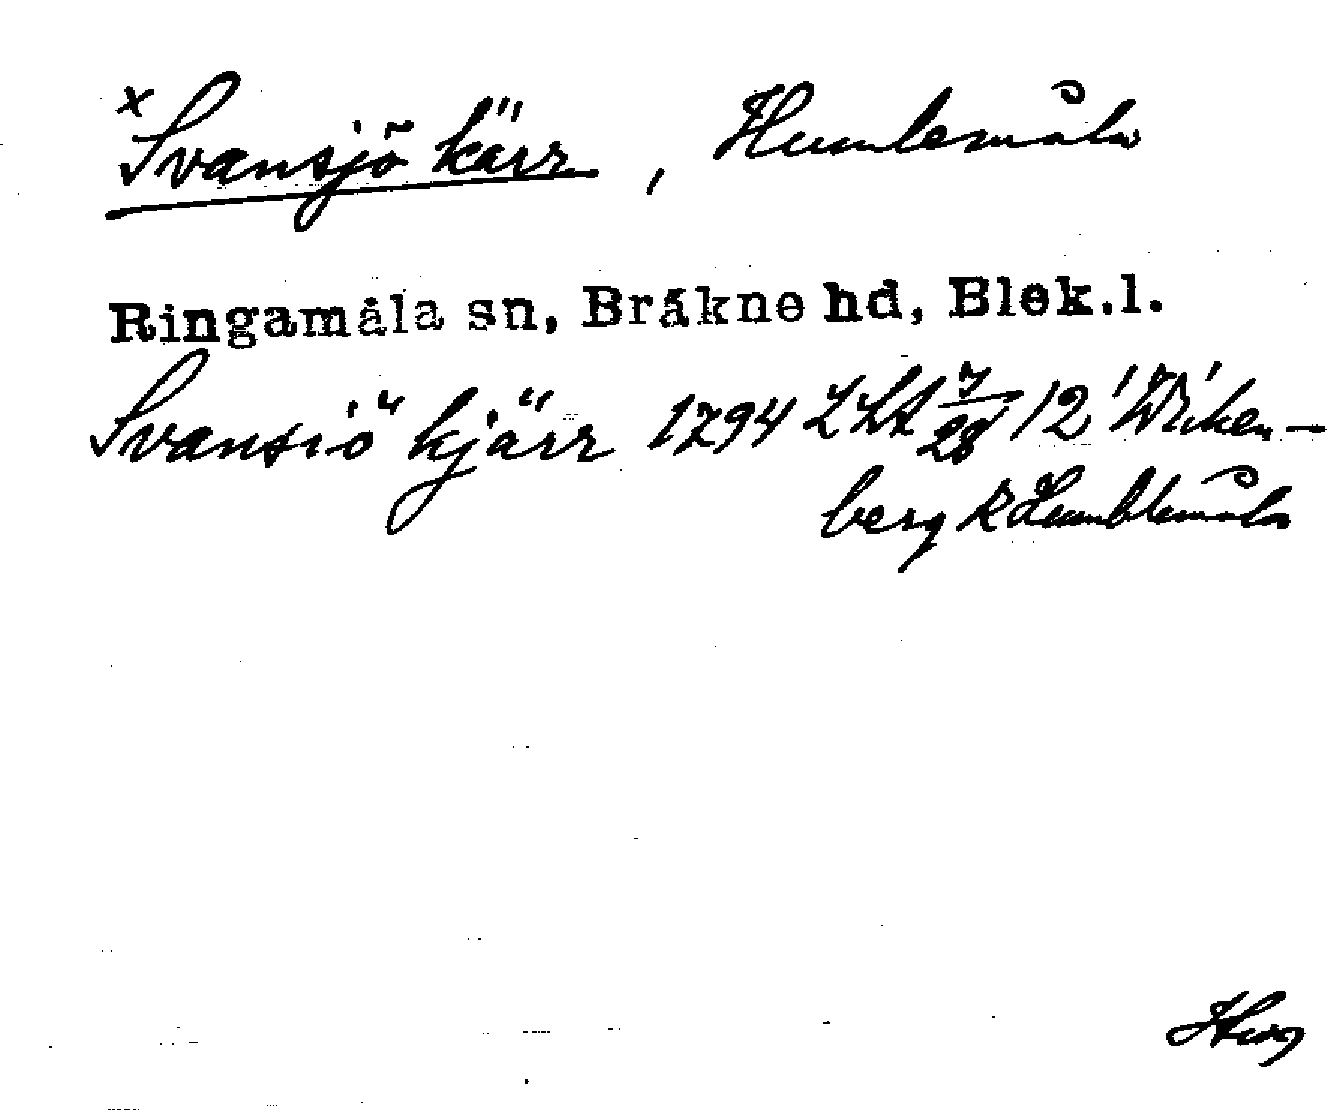 x Svansjö kärr, Humlemåla
Ringamåla sn, Bräkne hd, Blek.l.
Svansiö kjärr 1794 LSA 7/28 12 Wieken-
berg R Humblemåla